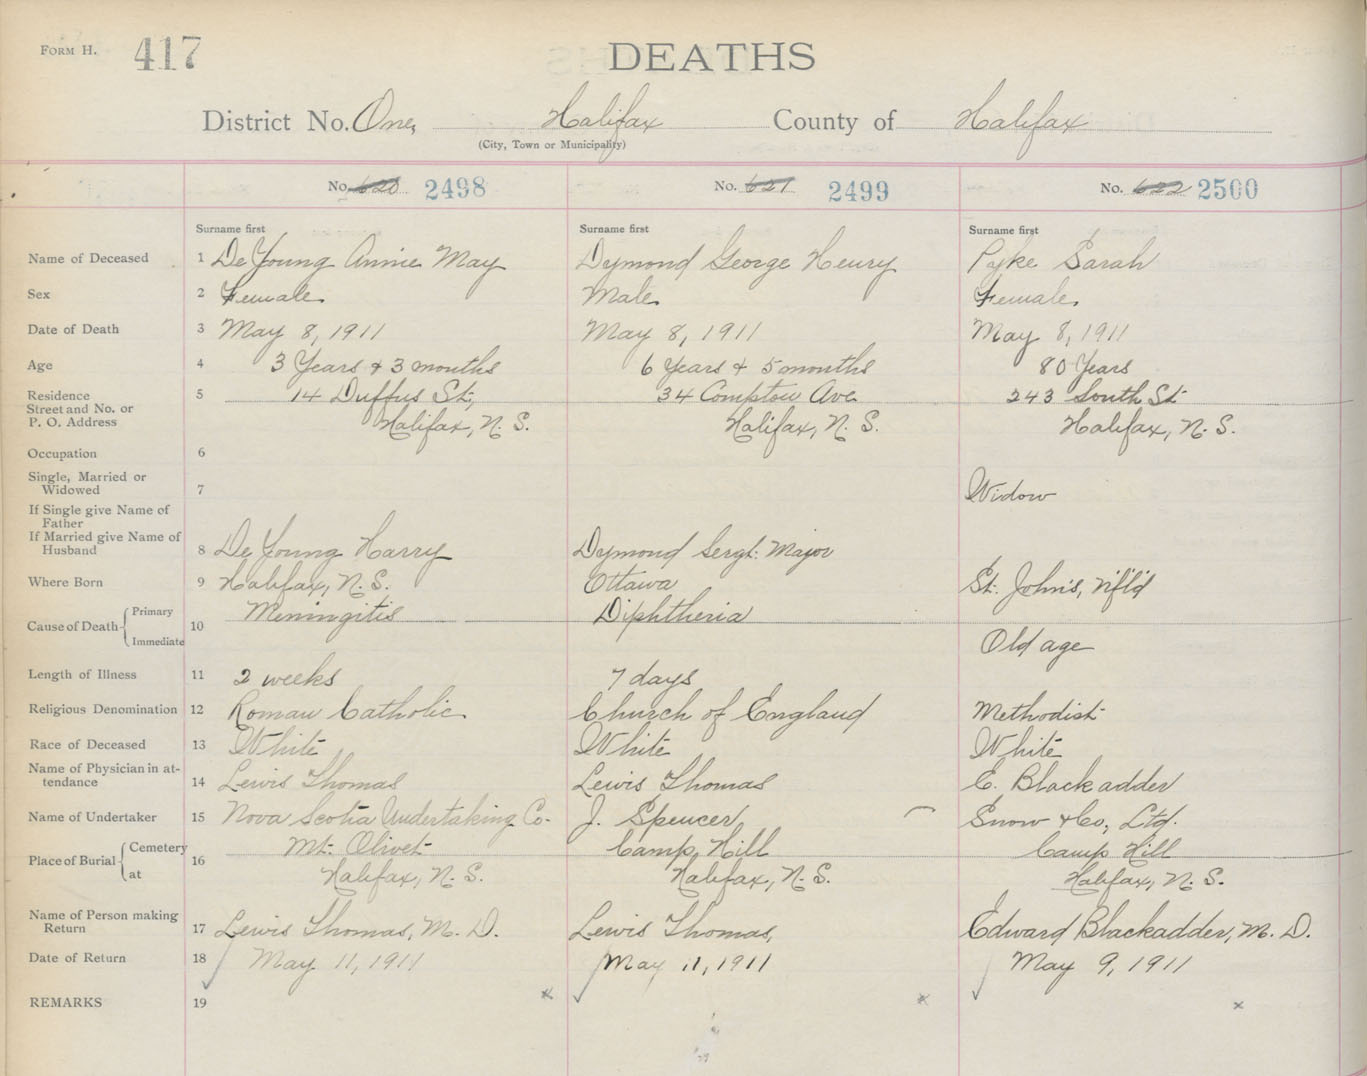 FORM H. 417
DEATHS
District No. One, Halifax County of Halifax
(City, Town or Municipality)
No. 620 2498 No. 621 2499 No. 622 2500
Surname first Surname first Surname first
Name of Deceased 1 DeYoung Annie May Dymond George Henry Pyke Sarah
Sex 2 Female Male Female
Date of Death 3 May 8, 1911 May 8, 1911 May 8, 1911
Age 4 3 Years & 3 months 6 Years & 5 months 80 Years
Residence 5 14 Duffus St, 34 Compton Ave 243 South St
Street and No. or
P. O. Address Halifax, N. S. Halifax, N. S. Halifax, N. S.
Occupation 6
Single, Married or
Widowed 7 Widow
If Single give Name of
Father
If Married give Name of
Husband 8 DeYoung Harry Dymond Sergt. Major
Where Born 9 Halifax, N. S. Ottawa St. John's, Nfl'd
Cause of Death Primary 10 Meningitis Diphtheria
Immediate Old age
Length of Illness 11 2 weeks 7 days
Religious Denomination 12 Roman Catholic Church of England Methodist
Race of Deceased 13 White White White
Name of Physician in at-
tendance 14 Lewis Thomas Lewis Thomas E. Blackadder
Name of Undertaker 15 Nova Scotia Undertaking Co. J. Spencer Snow & Co., Ltd.
Place of Burial Cemetery 16 Mt. Olivet Camp Hill Camp Hill
at Halifax, N. S. Halifax, N. S. Halifax, N. S.
Name of Person making
Return 17 Lewis Thomas, M. D. Lewis Thomas, Edward Blackadder, M. D.
Date of Return 18 May 11, 1911 May 11, 1911 May 9, 1911
REMARKS 19 x x x